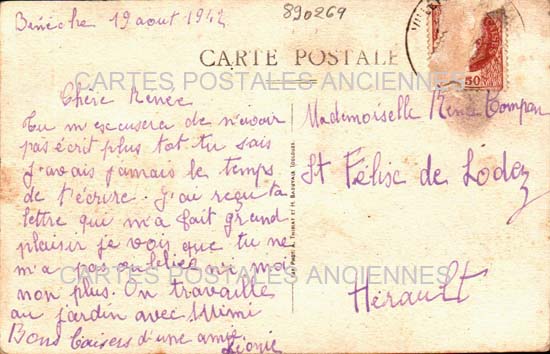 19 août 1942
890269
CARTE POSTALE
CARTES POSTALES ANCIENNES
Chère Renée
Tu m'excusera de n'avoir
pas écrit plus tot tu sais
j'avais jamais le temps
de t'écrire. J'ai reçu ta
lettre qui m'a fait grand
plaisir je vois que tu ne
m'a pas oubliée ni moi
non plus. On travaille
au jardin avec Mimi
Bons baisers d'une amie
Léonie
Mademoiselle Renée
St Félix de Lodez
Hérault
CARTES POSTALES ANCIENNES
50
TOULOUSE